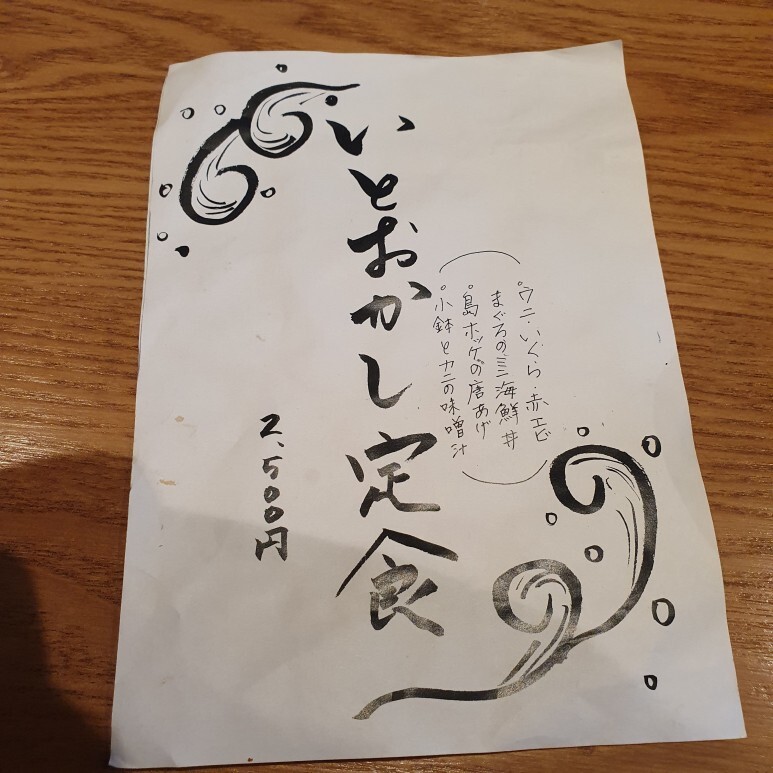 。ウニ・いくら・赤エビ
まぐろのミニ海鮮丼
。島ホッケの唐あげ
。小鉢とカニの味噌汁
いとおかし定食
2,500円